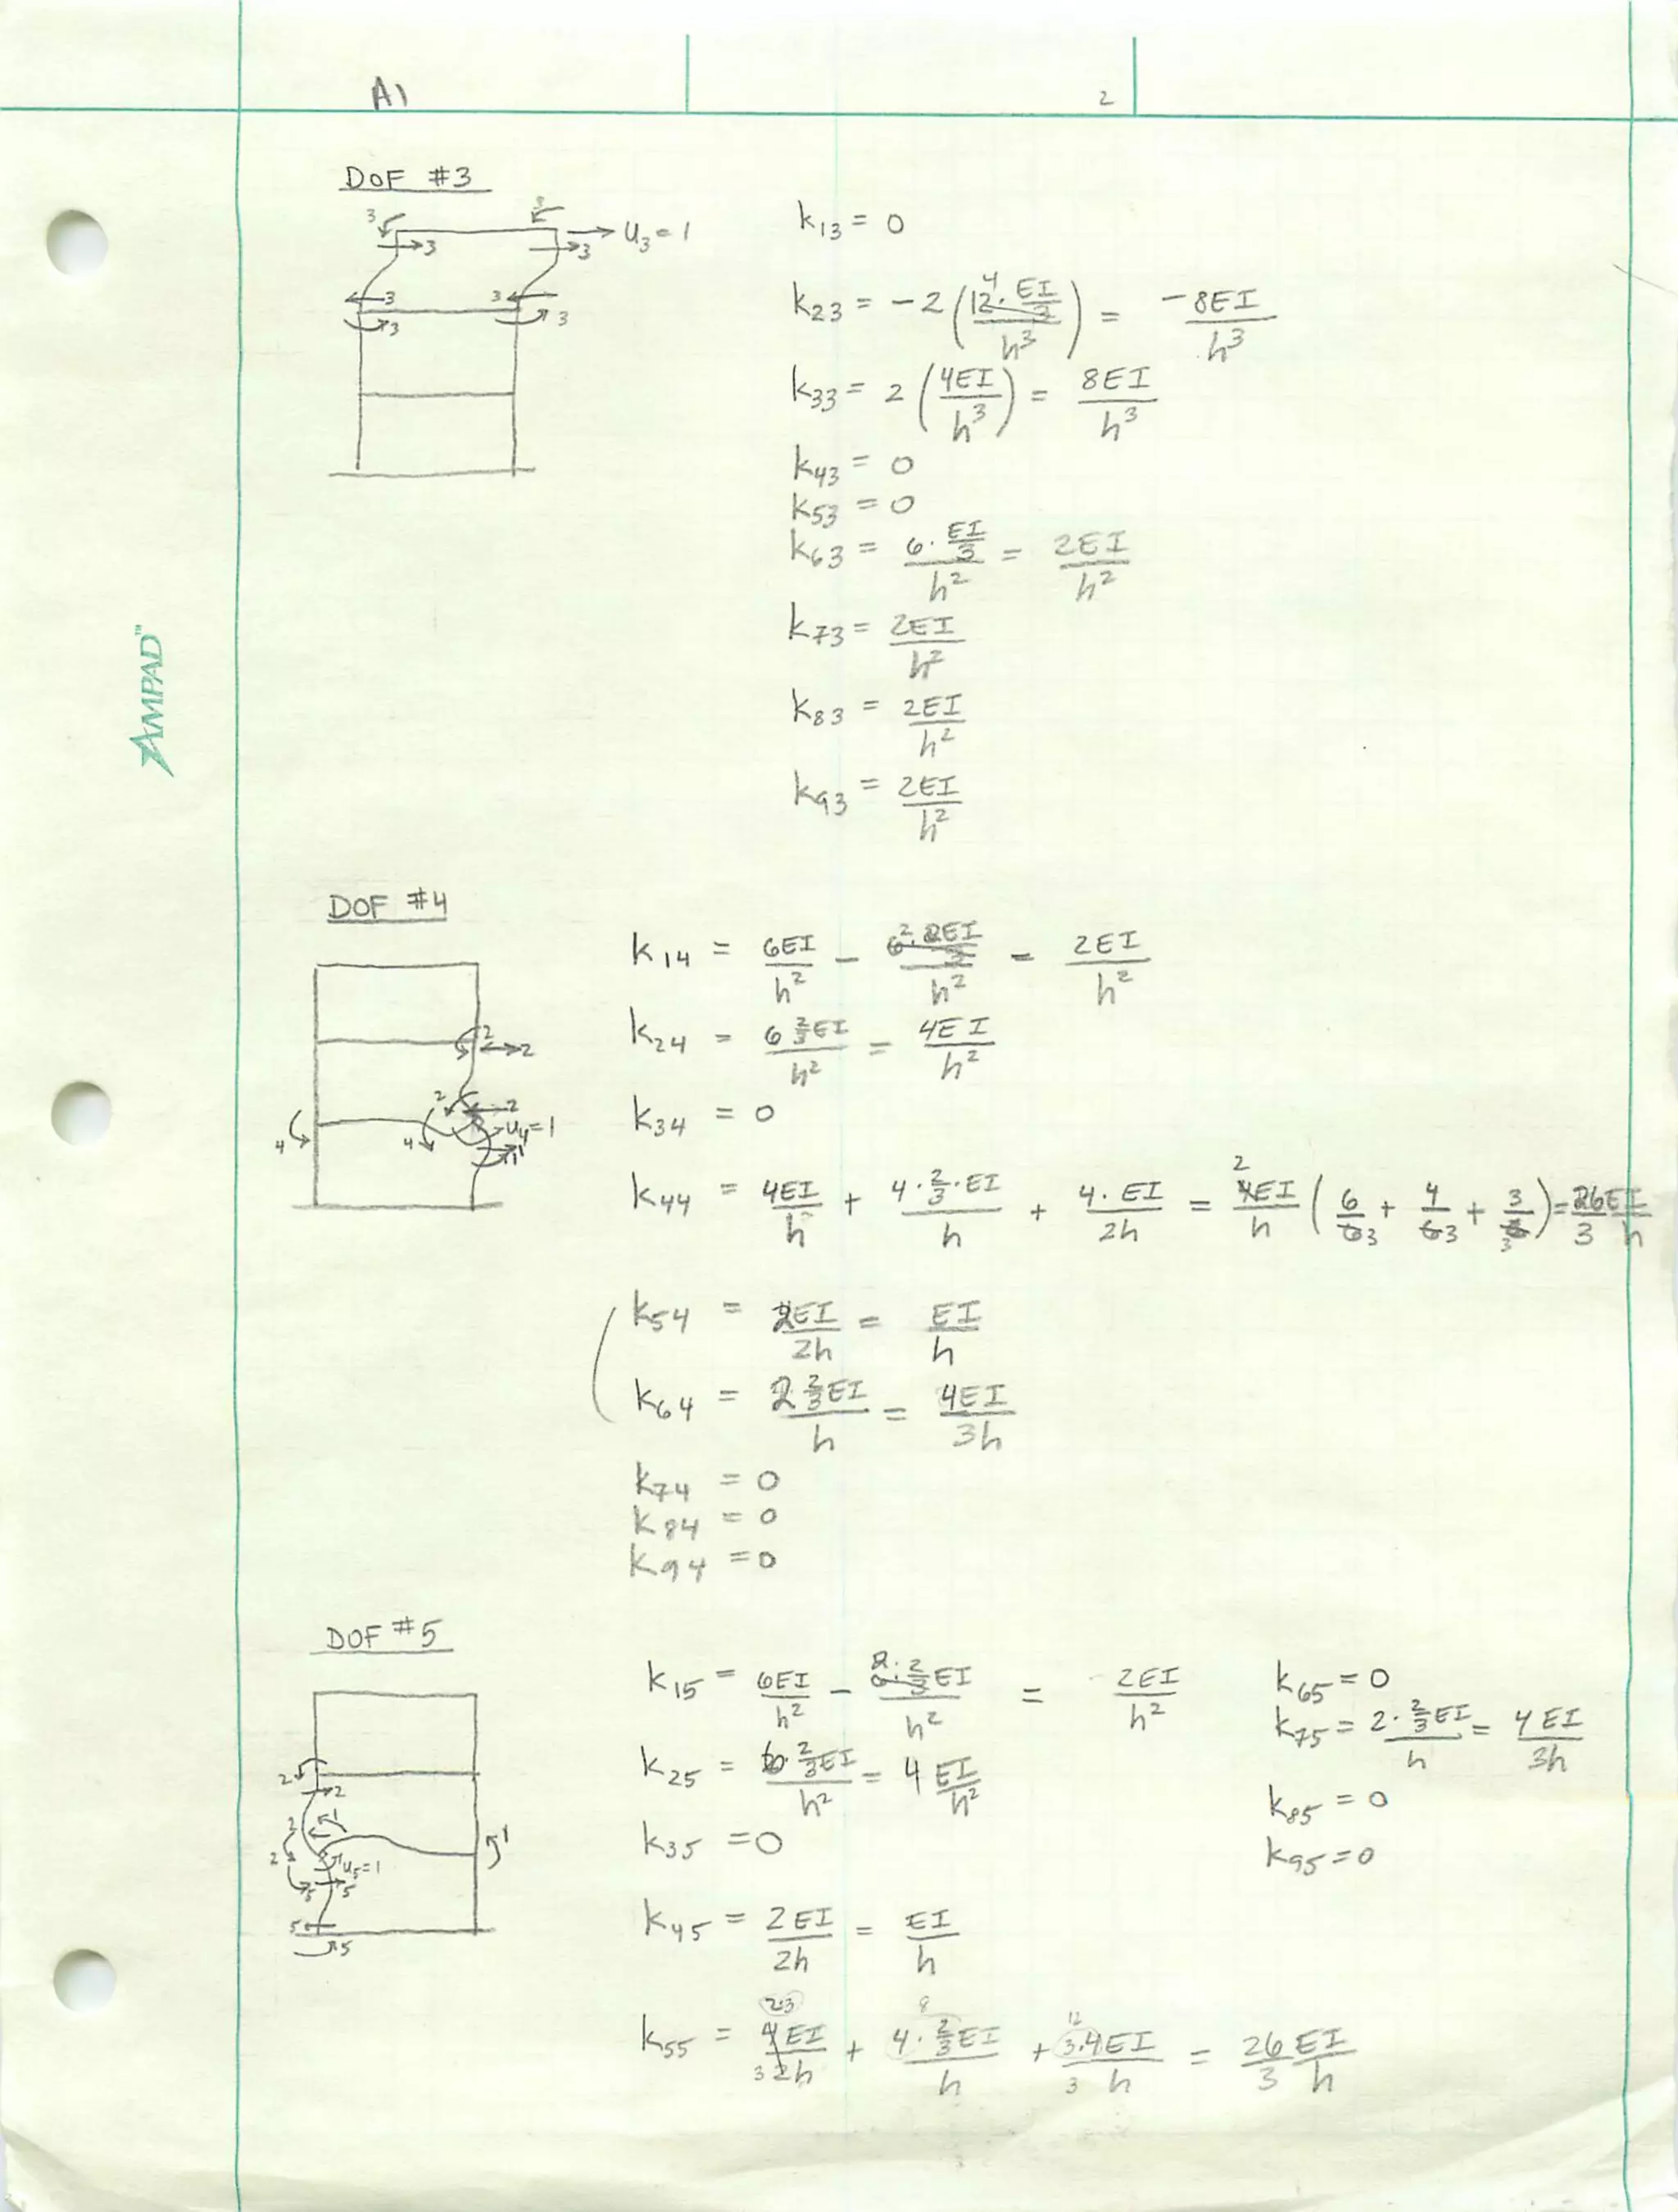 A1
2
DOF #3
3 3
3 → U₃ = 1
3
3 3
3 3
k₁₃ = 0
k₂₃ = -2 (12⁴ · EI/3 / h³) = -8EI/h³
k₃₃ = 2 (4EI/h³) = 8EI/h³
k₄₃ = 0
k₅₃ = 0
k₆₃ = 6 · EI/3 / h² = 2EI/h²
k₇₃ = 2EI/h²
k₈₃ = 2EI/h²
k₉₃ = 2EI/h²
AMPAD™
DOF #4
2
2
2 2
u₄ = 1
4 4 1
k₁₄ = 6EI/h² - 6 · 2EI/3 / h² = 2EI/h²
k₂₄ = 6 2/3 EI / h² = 4EI/h²
k₃₄ = 0
k₄₄ = 4EI/h + 4 · 2/3 · EI / h + 4 · EI / 2h = 2 4EI/h (6/63 + 4/63 + 3/3) = 26EI/3h
k₅₄ = 2EI/2h = EI/h
k₆₄ = 2 2/3 EI / h = 4EI/3h
k₇₄ = 0
k₈₄ = 0
k₉₄ = 0
DOF #5
2
2
2 1
1
2 U₅ = 1
5 5
5
5
k₁₅ = 6EI/h² - 2 · 2/3 EI / h² = 2EI/h²
k₂₅ = 6 · 2/3 EI / h² = 4 EI/h²
k₃₅ = 0
k₄₅ = 2EI/2h = EI/h
k₅₅ = 2·3 4EI / 3 2h + 8 4 · 2/3 EI / h + 12 3·4EI / 3 h = 26/3 EI/h
k₆₅ = 0
k₇₅ = 2 · 2/3 EI / h = 4EI/3h
k₈₅ = 0
k₉₅ = 0